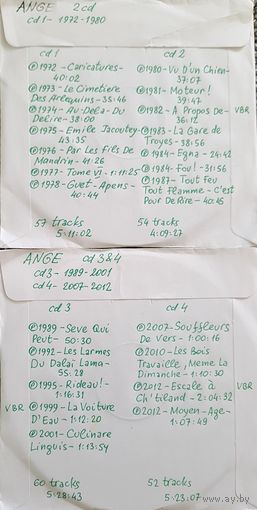 ANGE 2cd
cd1- 1972-1980
cd1
℗1972-Caricatures-
40:02
℗1973-Le Cimetiere
Des Arlequins-35:46
℗1974-Au-Dela-Du
Delire-38:00
℗1975-Emile Jacoutey-
43:35
℗1976-Par Les Fils De
Mandrin-41:26
℗1977-Tome VI-1:11:25
℗1978-Guet-Apens-
40:44
57 tracks
5:11:02
cd2
℗1980-Vu D'un Chien-
37:07
℗1981-Moteur!
39:47
℗1982-A Propos De-
36:12
VBR
℗1983-La Gare de
Troyes-38:56
℗1984-Egna-24:42
℗1984-Fou!-31:56
℗1987-Tout Feu
Tout Flamme-C'est
Pour De Rire-40:45
54 tracks
4:09:27
ANGE cd3&4
cd3-1989-2001
cd4-2007-2012
cd3
℗1989-Seve Qui
Peut-50:30
℗1992-Les Larmes
Du Dalaï Lama-
55:28
℗1995-Rideau!-
1:16:31
VBR
℗1999-La Voiture
D'Eau-1:12:20
℗2001-Culinare
Linguis-1:13:54
60 tracks
5:28:43
cd4
℗2007-Souffleurs
De Vers-1:00:16
℗2010-Les Bois
Travaille, Meme La
Dimanche-1:10:30
℗2012-Escale à
Ch'tiland-2:04:32
VBR
℗2012-Moyen-Age-
1:07:49
52 tracks
5:23:07
www.ay.by